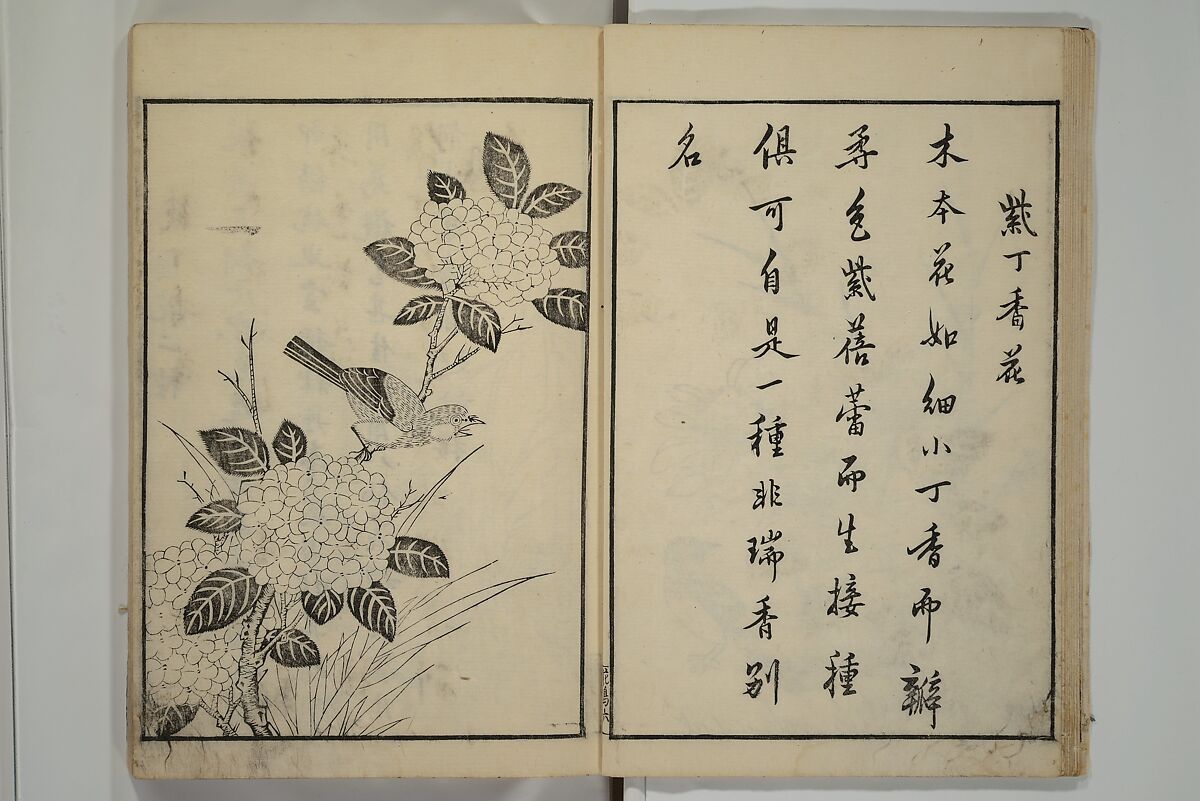 紫丁香花
木本花如細小丁香而瓣
柔色紫蓓蕾而生接種
俱可自是一種非瑞香別
名